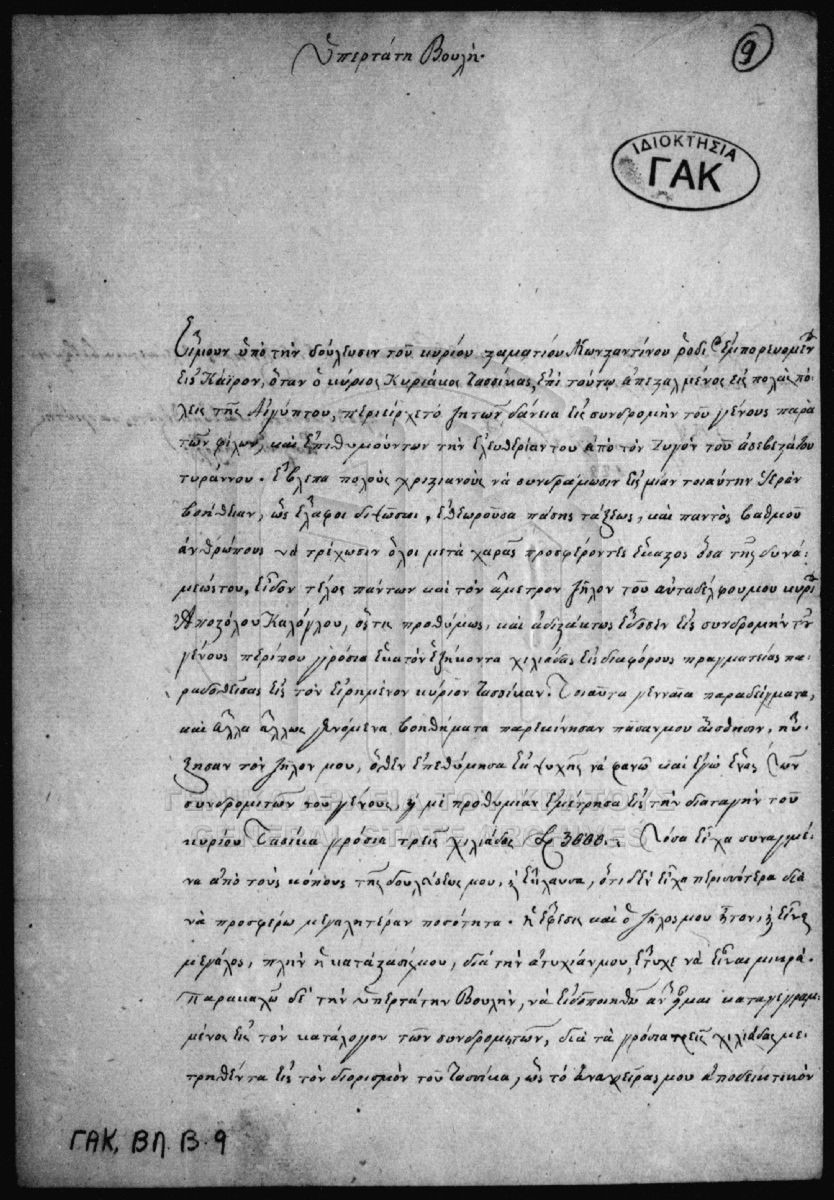 Ὑπερτάτη Βουλή.
9
ΙΔΙΟΚΤΗΣΙΑ
ΓΑΚ
Εἴμουν ὑπὸ τὴν δούλευσιν τοῦ κυρίου Κωνσταντίνου ἐμπορευομέν
εἰς Κάϊρον, ὅταν ὁ κύριος Κυριάκος Τασσίκας, ἐπὶ τούτῳ ἀπεσταλμένος εἰς πολὰς πό
λεις τῆς Αἰγύπτου, περιείρχετο ζητῶν δάνεια εἰς συνδρομὴν τοῦ γένους παρὰ
τῶν φίλων, καὶ ἐπιθυμούντων τὴν ἐλευθερίαν του ἀπὸ τὸν ζυγὸν τοῦ ἀσεβεστάτου
τυράννου. ἔβλεπα πολοὺς χριστιανοὺς νὰ συνδράμωσιν εἰς μίαν τοιαύτην ἱερὰν
βοήθειαν, ὡς ἔλαφοι διψῶσαι, ἐθεωροῦσα πάσης τάξεως, καὶ παντὸς βαθμοῦ
ἀνθρώπους νὰ τρέχωσιν ὅλοι μετὰ χαρᾶς προσφέροντες ἕκαστος ὅσα τῆς δυνά
μεώς του, εἶδον τέλος πάντων καὶ τὸν ἄμετρον ζῆλον τοῦ αὐταδέλφου μου κυρί
Ἀποστόλου Καλόγλου, ὅστις προθύμως, καὶ ἀδιστάκτως ἔδωσεν εἰς συνδρομὴν τοῦ
γένους περίπου γρόσια ἑκατὸν ἑξήκοντα χιλιάδας εἰς διαφόρους πραγματείας πα
ραδοθείσας εἰς τὸν εἰρημένον κύριον Τασσίκαν. Τοιαῦτα γενναῖα παραδείγματα,
καὶ ἄλλα ἄλλως γινόμενα βοηθήματα παρεκίνησαν πᾶσαν μου αἴσθησιν, ηὔ
ξησαν τὸν ζῆλον μου, ὅθεν ἐπεθύμησα ἐκ ψυχῆς νὰ φανῶ καὶ ἐγὼ ἕνας τῶν
συνδρομιτῶν τοῦ γένους, καὶ μὲ προθυμίαν ἐμέτρησα εἰς τὴν διαταγὴν τοῦ
κυρίου Τασίκα γρόσια τρεῖς χιλιάδας 3000. Τόσα εἶχα συναγμέ
να ἀπὸ τοὺς κόπους τῆς δουλεύσεώς μου, καὶ ἔκλαυσα, ὅτι δὲν εἶχα περισσότερα διὰ
νὰ προσφέρω μεγαλητέραν ποσότητα. ἡ ἔφεσις καὶ ὁ ζῆλος μου ἦτον, καὶ εἶναι
μεγάλος, πλὴν ἡ κατάστασίς μου, διὰ τὴν ἀτυχίαν μου, ἔτυχε νὰ εἶναι μικρά.
Παρακαλῶ δὲ τὴν ὑπερτάτην Βουλὴν, νὰ εἰδοποιηθῶ ἂν ἦμαι καταγεγραμ
μένος εἰς τὸν κατάλογον τῶν συνδρομητῶν, διὰ τὰ γρόσια τρεῖς χιλιάδας με
τρηθέντα εἰς τὸν διορισμὸν τοῦ Τασσίκα, ὡς τὸ ἀνὰ χεῖρας μου ἀποδεικτικὸν
ΓΑΚ, ΒΛ. Β. 9